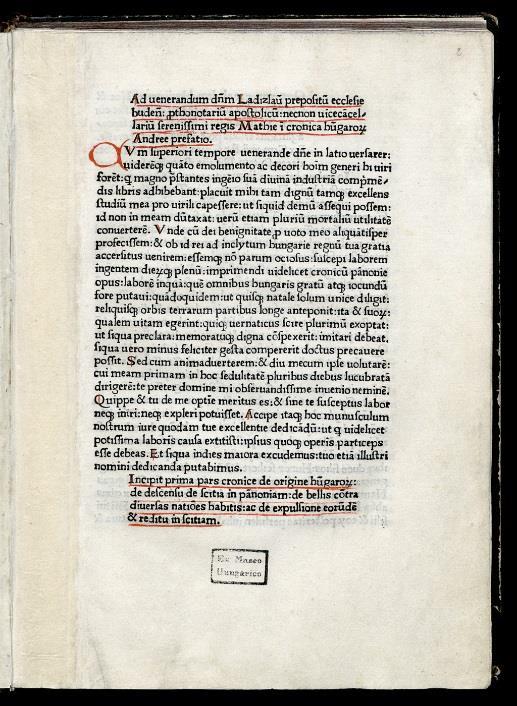 2
Ad uenerandum dñm Ladizlaū prepositū ecclesie
budeñ: ꝓthonotariū apostolicū: necnon uicecācel⸗
lariū serenissimi regis Mathie ī cronica hūgaroꝝ
Andree prefatio.
QVm superiori tempore uenerande dñe in latio uersarer:
uideremꝗ quāto emolumento ac decori hoīm generi hi uiri
forēt: ꝗ magno p̄stantes ingēio suā diuinā industriā comp̄mē⸗
dis libris adhibebant: placuit mihi tam dignū tamꝗ excellens
studiū mea pro uirili capessere: ut siquid demū assequi possem:
id non in meam dūtaxat: uerū etiam pluriū mortaliū utilitatē
conuerterē. Vnde cū dei benignitate, ꝓ uoto meo aliquātisper
profecissem: & ob id rei ad inclytum hungarie regnū tua gratia
accersitus uenirem: essemꝗ nō parum ociosus: suscepi laborem
ingentem dieꝝꝗ plenū: imprimendi uidelicet cronicū pānonie
opus: laborē inquā: quē omnibus hungaris gratū atꝗ iocundū
fore putaui: quādoquidem: ut quisꝗ natale solum unice diligit:
reliquisꝗ orbis terrarum partibus longe anteponit: ita & suoꝝ:
qualem uitam egerint: quiꝗ uernaticus scire plurimū exoptat:
ut siqua preclara: memoratuꝗ digna cōspexerit: imitari debeat.
siqua uero minus feliciter gesta compererit doctus precauere
possit. Sed cum animaduerterem: & diu mecum ipse uolutarē:
cui meam primam in hoc sedulitatē pluribus diebus lucubratā
dirigerē: te preter domine mi obseruandissime inuenio neminē.
Quippe & tu de me optie meritus es: & sine te susceptus labor
neꝗ iniri: neꝗ expleri potuisset. Accipe itaꝗ hoc munusculum
nostrum iure quodam tue excellentie dedicādū: ut ꝗ uidelicet
potissima laboris causa extitisti: ipsius quoꝗ operis particeps
esse debeas. Et siqua indies maiora excudemus: tuo etiā illustri
nomini dedicanda putabimus.
Incipit prima pars cronice de origine hūgaroꝝ:
de descensu de scitia in pānoniam: de bellis cōtra
diuersas natiōes habitis: ac de expulsione eorūdē
& reditu in scitiam.
Ex Museo
Hungarico